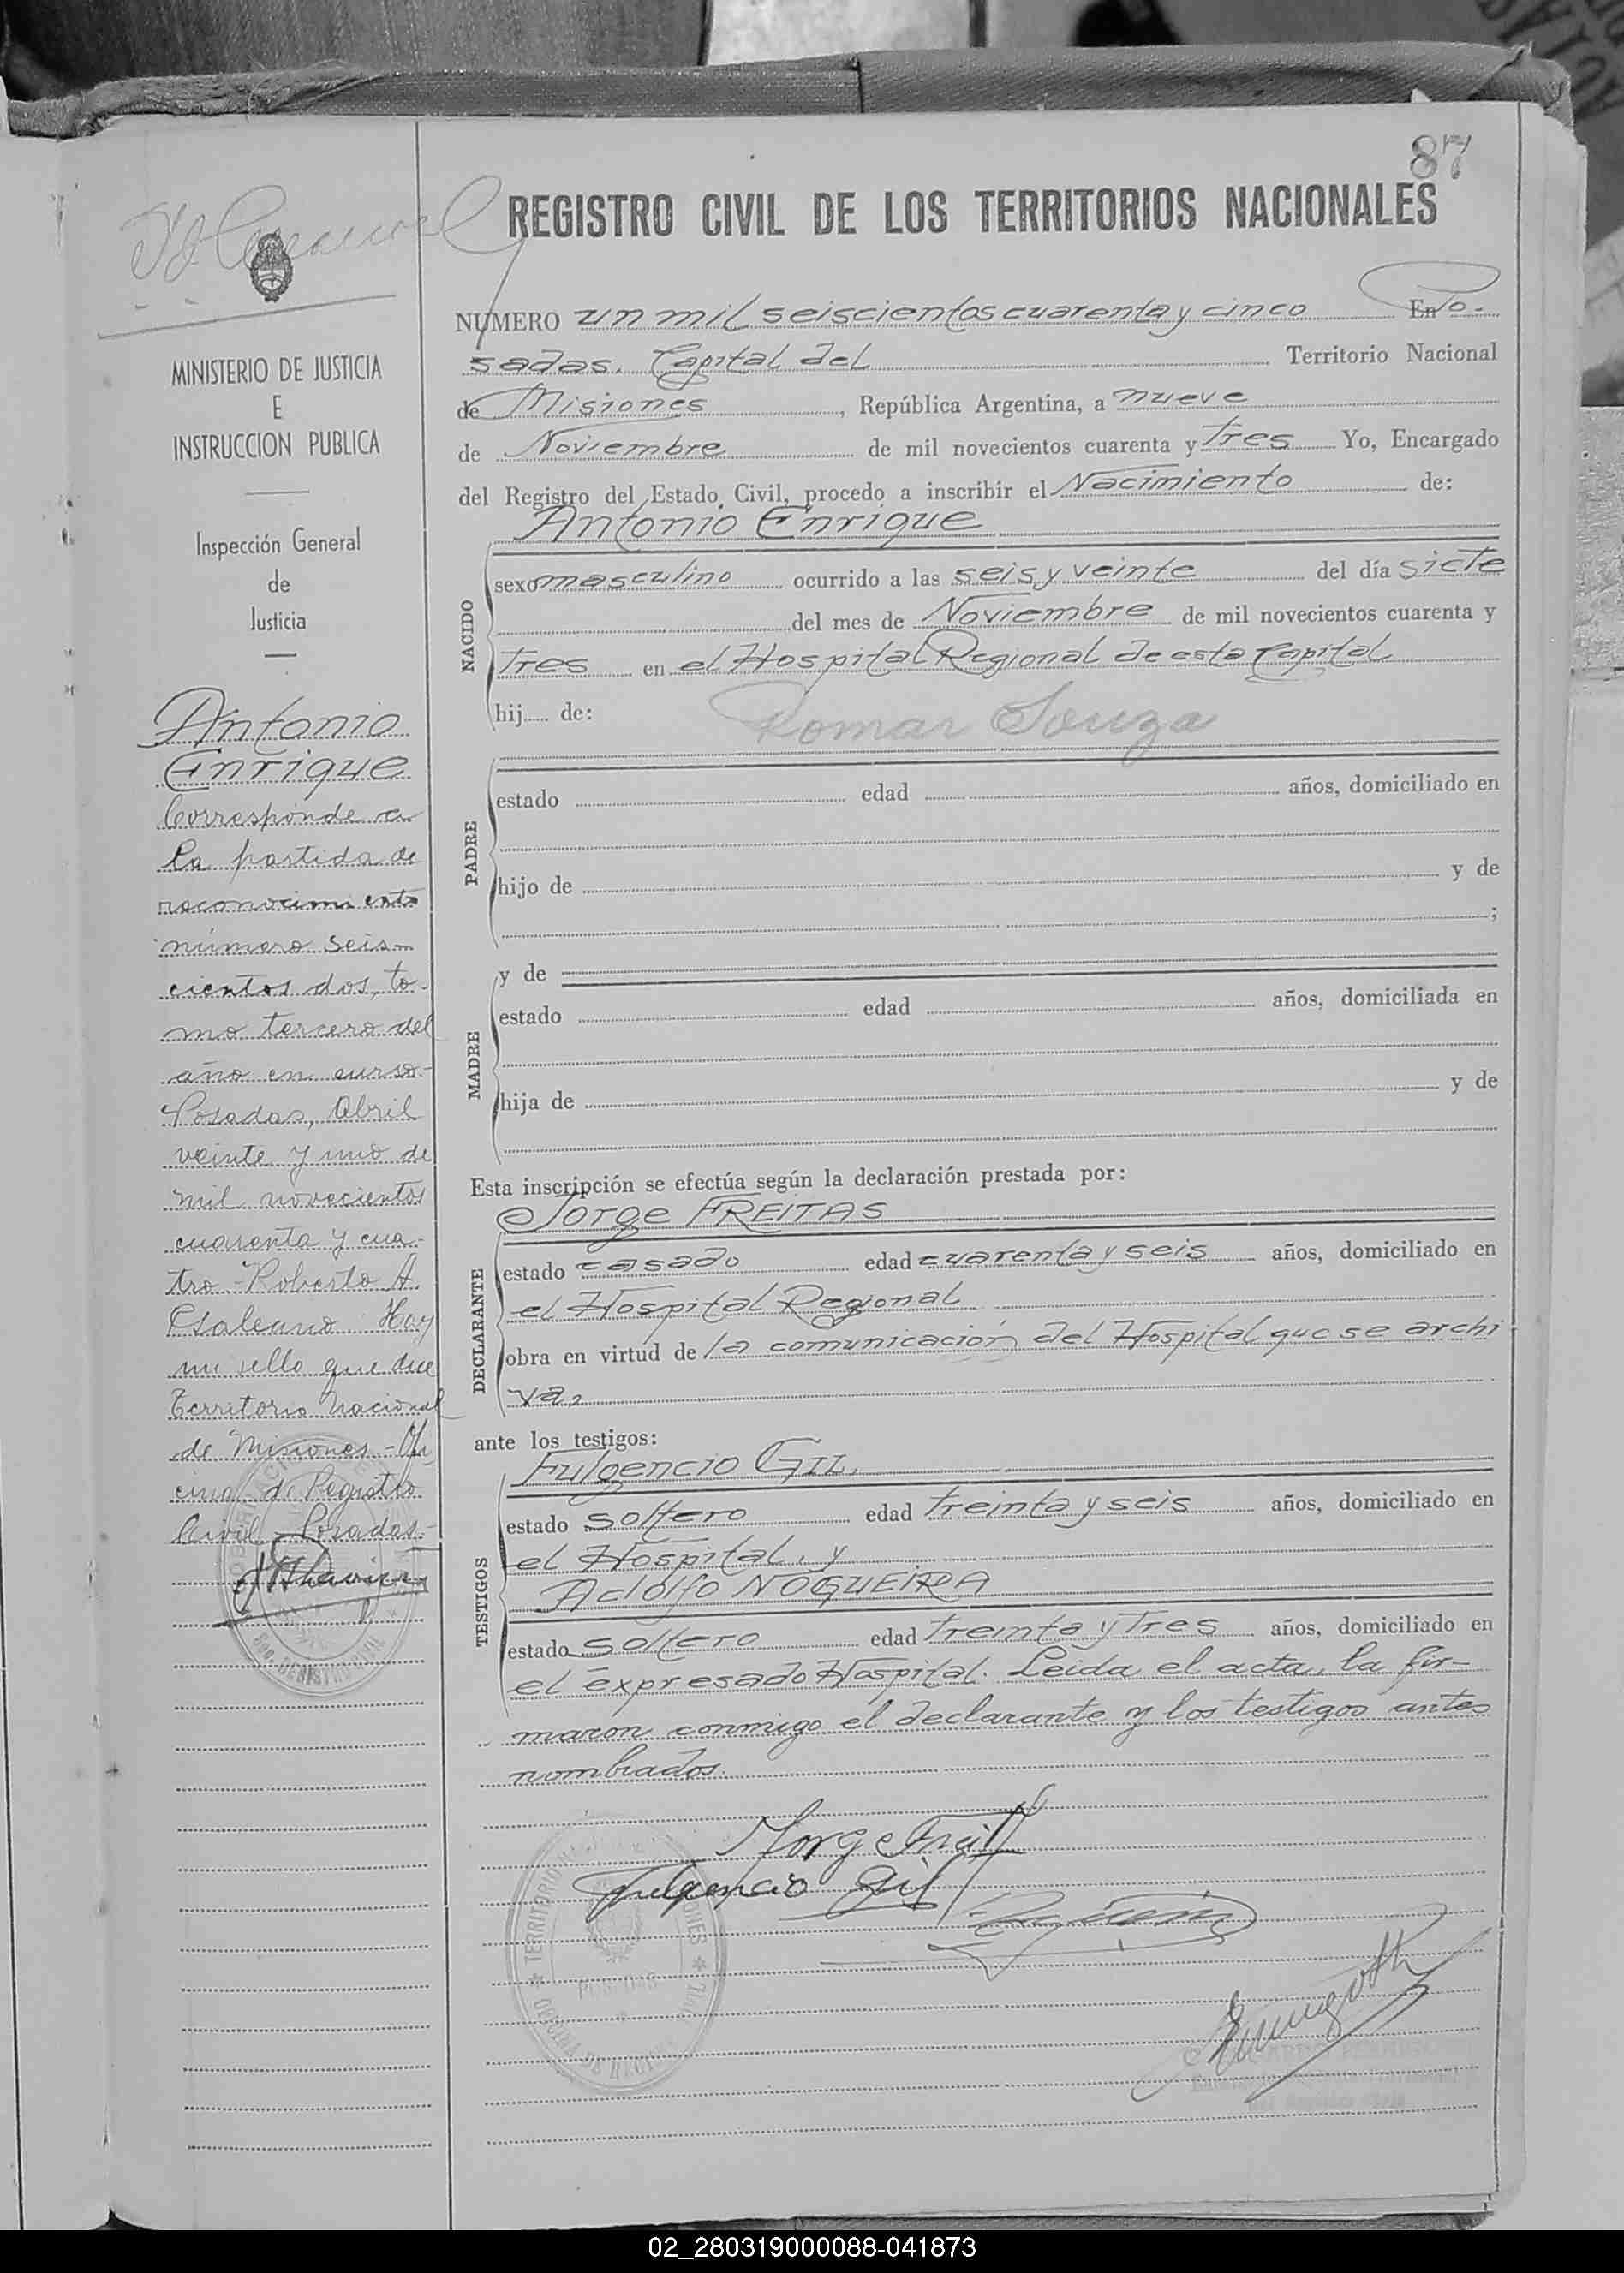 87
REGISTRO CIVIL DE LOS TERRITORIOS NACIONALES
NUMERO un mil seiscientos cuarenta y cinco En Po-
sadas, Capital del Territorio Nacional
de Misiones, República Argentina, a nueve
de Noviembre de mil novecientos cuarenta y tres Yo, Encargado
del Registro del Estado Civil, procedo a inscribir el Nacimiento de:
NACIDO
Antonio Enrique
sexo masculino ocurrido a las seis y veinte del día siete
del mes de Noviembre de mil novecientos cuarenta y
tres en el Hospital Regional de esta Capital
hij de:
Romar Souza
PADRE
estado edad años, domiciliado en
hijo de y de
;
MADRE
y de
estado edad años, domiciliada en
hija de y de
Esta inscripción se efectúa según la declaración prestada por:
DECLARANTE
Jorge FREITAS
estado casado edad cuarenta y seis años, domiciliado en
el Hospital Regional
obra en virtud de la comunicación del Hospital que se archi
va,
ante los testigos:
TESTIGOS
Fulgencio GIL,
estado soltero edad treinta y seis años, domiciliado en
el Hospital, y
Adolfo NOGUEIRA
estado soltero edad treinta y tres años, domiciliado en
el expresado Hospital. Leida el acta, la fir-
maron conmigo el declarante y los testigos antes
nombrados.
Jorge Freit
Fulgencio Gil
MINISTERIO DE JUSTICIA
E
INSTRUCCION PUBLICA
Inspección General
de
Justicia
Antonio
Enrique
Corresponde a
la partida de
reconocimiento
número seis-
cientos dos, to-
mo tercero del
año en curso-
Posadas, Abril
veinte y uno de
mil novecientos
cuarenta y cua-
tro - Roberto A.
Galeano. Hay
un sello que dice
Territorio Nacional
de Misiones - Ofi
cina de Registro
Civil - Posadas -
REGISTRO CIVIL
TERRITORIO
02_280319000088-041873